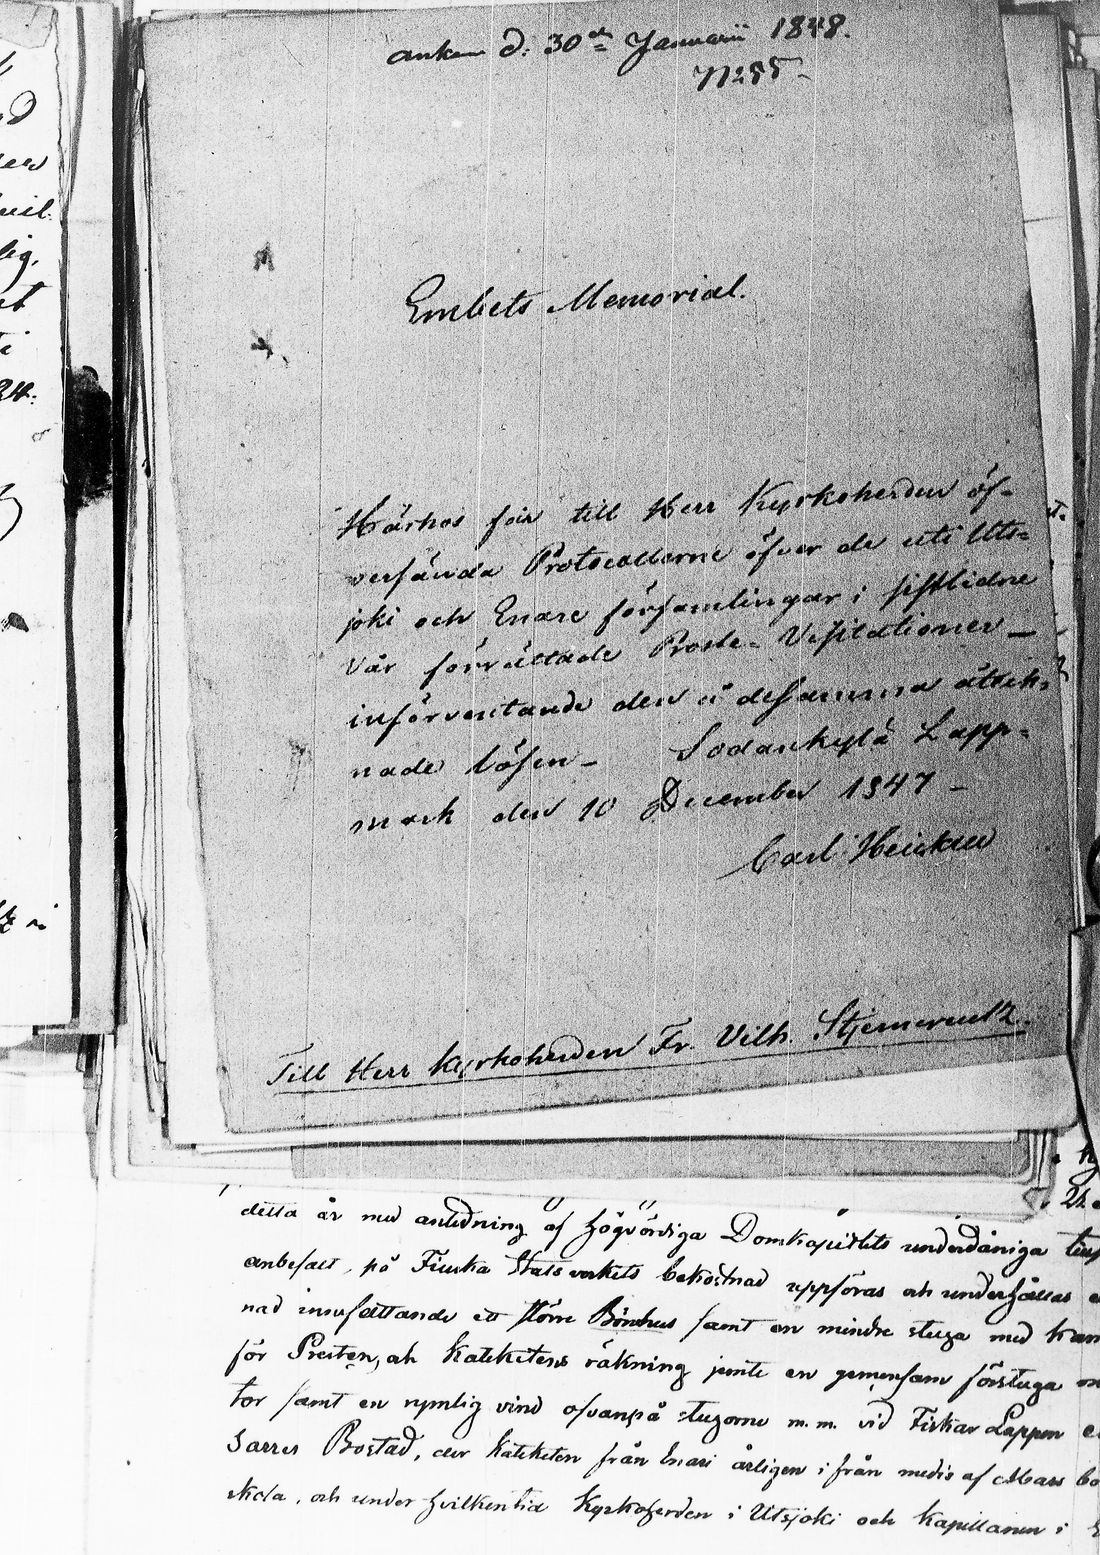 ankom d: 30de Januarii 1848.
N:o 55.
Embets Memorial.
Härhos får till Herr Kyrkoherden öf-
versända Protocollerne öfver de uti Uts-
joki och Enare församlingar i sistlidne
vår förrättade Prosts-Visitationer —
införventande den å desamma åtek-
nade lösen — Sodankylä Lapp-
mark den 10 December 1847 —
Carl Heickell
Till Herr Kyrkoherden Fr. Vilh. Stjerncreutz.
detta år med anledning af Högvördiga Domkapitlets underdåniga
anbefalt, på Finska Statsverkets bekostnad uppföras och underhållas
nad innefattande ett större Bönehus samt en mindre stuga med
för Presten, och Kateketens räkning jemte en gemensam förstuga
tor samt en rymlig vind ofvanpå stugorne m.m. vid Fiskar Lappen
Sarres Bostad, der Kateketen från Enari årligen ifrån medio af Mars
skola, och under hvilken tid Kyrkoherden i Utsjoki och Kapellanen i